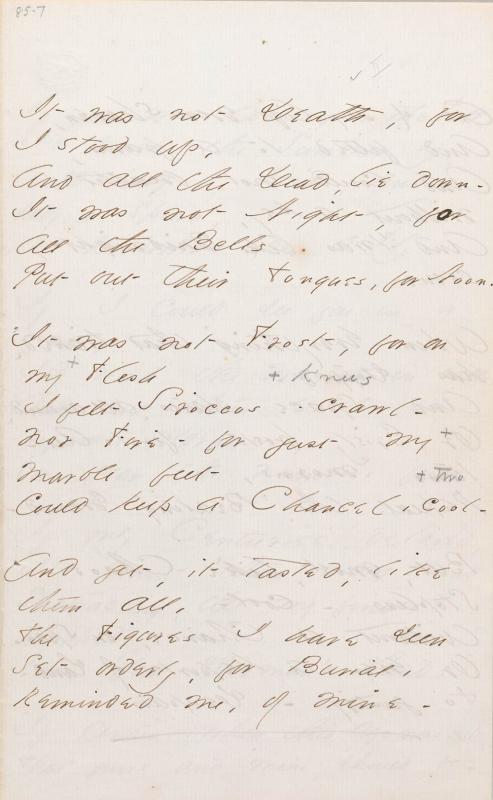 85-7
It was not Death, for
I stood up,
And all the Dead lie down -
It was not Night, for
all the Bells
Put out their Tongues, for Noon.
It was not Frost, for on
my + Flesh + Knees
I felt Siroccos - crawl -
nor Fire - for just my +
marble feet - + two
Could keep a Chancel, cool -
And yet, it tasted, like
them all,
The Figures I have seen
Set orderly, for Burial,
Reminded me, of mine -